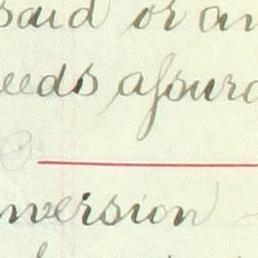 said or an
eeds assurd
nversion